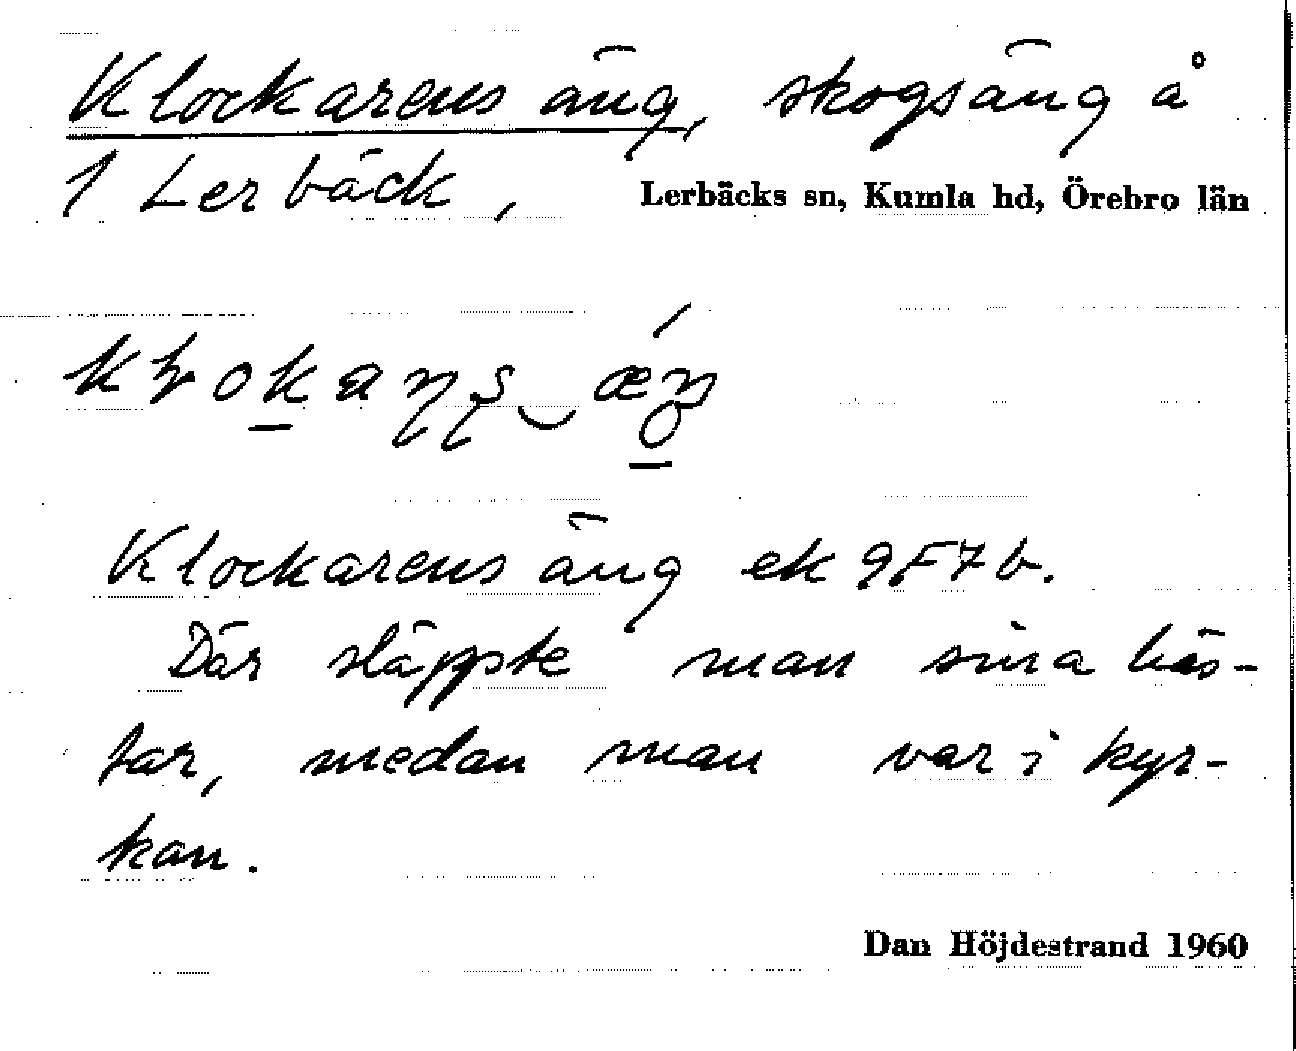 Klockarens äng, skogsäng å
1 Lerbäck, Lerbäcks sn, Kumla hd, Örebro län
Klockarens äng ek 9F7b.
Där släppte man sina häs-
tar, medan man var i kyr-
kan.
Dan Höjdestrand 1960